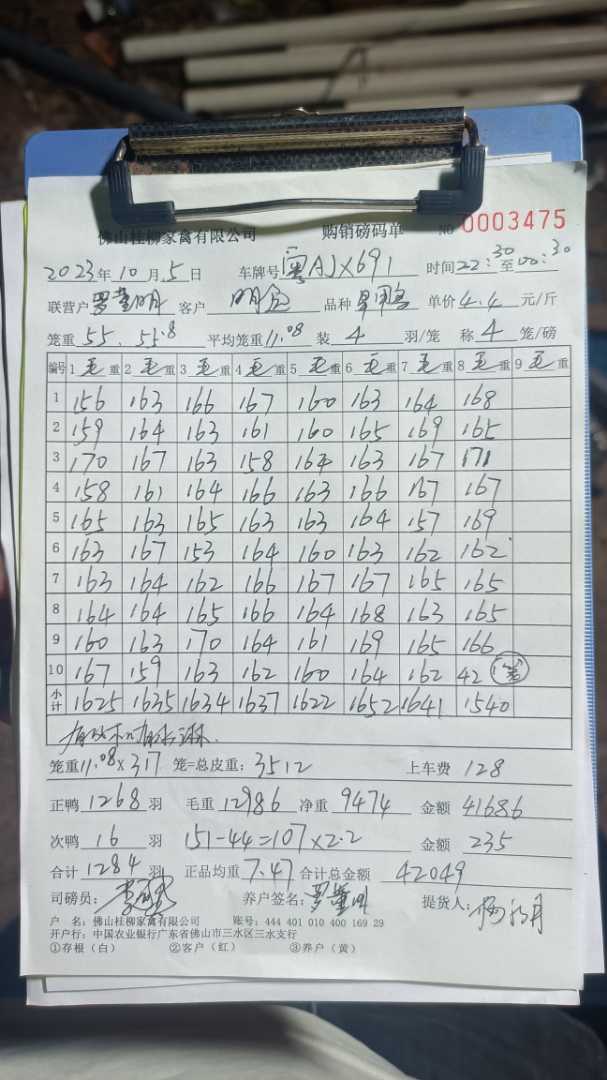 佛山桂柳家禽有限公司 购销磅码单 NO 0003475
2023年10月5日 车牌号 粤AJX691 时间22:30至00:30
联营户 罗 明 客户 明 品种 单价4.4元/斤
笼重55. 55.8 平均笼重11.08 装4羽/笼 称4笼/磅
编号 1毛重 2毛重 3毛重 4毛重 5毛重 6毛重 7毛重 8毛重 9毛重
1 156 163 166 167 160 163 164 168
2 159 164 163 161 160 165 169 165
3 170 167 163 158 164 163 167 171
4 158 161 164 166 163 166 167 167
5 165 163 165 163 163 164 157 169
6 163 167 153 164 160 163 162 162
7 163 164 162 166 167 167 165 165
8 164 164 165 166 164 168 163 165
9 160 163 170 164 161 169 165 166
10 167 159 163 162 160 164 162 42
小计 1625 1635 1634 1637 1622 1652 1641 1540
笼重11.08×317笼=总皮重:3512 上车费128
正鸭1268羽 毛重12986 净重9474 金额41686
次鸭16羽 151-44=107×2.2 金额235
合计1284羽 正品均重7.47 合计总金额42049
司磅员: 养户签名:罗 明 提货人:杨
户 名:佛山桂柳家禽有限公司 账号:444 401 010 400 169 29
开户行:中国农业银行广东省佛山市三水区三水支行
①存根(白) ②客户(红) ③养户(黄)